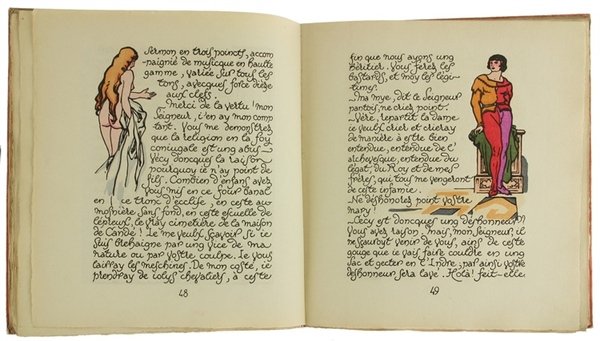 sermon en trois poincts, accom
-paignie de musicque en haulte
gamme, variée sur tous les
tons, avecques force dièse
aux clefs.
_Merci de la vertu! mon
Seigneur, i'en ay mon comp
tant. Vous me demonstrez
que la religion en la foy
coniugale est ung abus_
Vécy doncques la raison
pourquoy ie n'ay point de
fils. Combien d'enfans avez
vous mis en ce four banal
en ce tronc d'ecclise, en ceste au
mosnière sans fond, en ceste escuelle de
lépreux, le vray cimetière de la maison
de Candé! Ie me veulx sçavoir si ie
suis brehaigne par ung vice de ma
nature ou par vostre coulpe. Ie vous
lairray les meschines. De mon coste, ie
prendray de iolys chevaliers, à ceste
48
fin que nous ayons ung
héritier. Vous ferez les
bastards, et moy les légi-
times.
_Ma mye, dit le Seigneur
pantois, ne criez point.
_Vère, repartit la dame
ie veulx crier et crieray
de manière à estre bien
entendue, entendue de l'
archevesque, entendue du
légat, du Roy et de mes
frères, qui tous me vengeront
de ceste infamie.
_Ne deshonorez point vostre
mary!
_Cecy est doncques ung deshonneur?
Vous avez raison, mais, mon Seigneur, il
ne sçauroyt venir de vous, ains de ceste
gouge que ie vais faire couldre en ung
sac et gecter en l'Indre; par ainsi vostre
deshonneur sera lavé. Holà! feit-elle
49